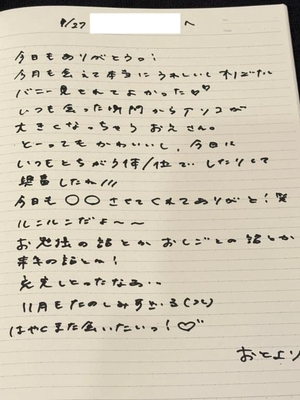 9/27 へ
今日もありがとうっ!
今月も会えて本当にうれしいし オリジナル
バニー見れてよかった♡♡
いつも会った瞬間からアソコが
大きくなっちゃうおえさん。
とーってもかわいいし、今日は
いつもとちがう体/位で したりして
興奮したね///
今日も〇〇させてくれてありがと!笑
ルンルンだよ〜〜
お勉強の話とか おしごとの話とか
来年の話とか!
充実しとったなあ..
11月もたのしみすぎる
はやくまた会いたいっ!♡
おとより